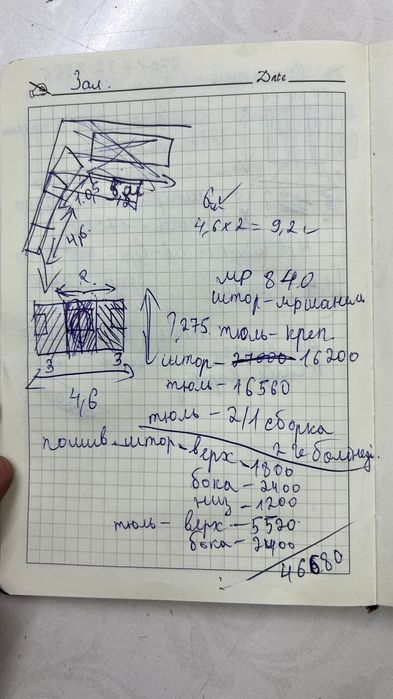 Зал.
Date
1.0,5
3,2
4,6.
6 м
4,6x2 = 9,2
МР 840
2.
275.
тюль-креп
штор- 27000 16200
тюль - 16560
3 3
4,6
тюль - 2/1 сборка
2 ге бөлінеді.
пошив-штор-верх - 1800
бока - 2400
низ - 1200
тюль - верх - 5520
бока - 2400
46680